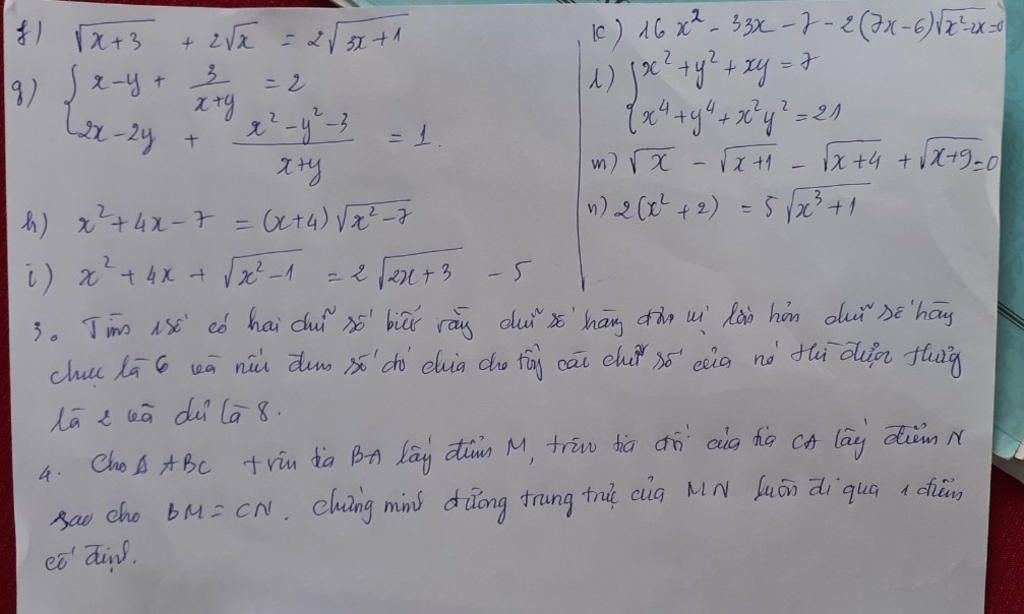 f) √(x+3) + 2√x = 2√(3x+1)
g) { x-y + 3/(x+y) = 2
2x-2y + (x²-y²-3)/(x+y) = 1.
h) x²+4x-7 = (x+4)√(x²-7)
i) x²+4x + √(x²-1) = 2√(2x+3) - 5
k) 16x² - 33x - 7 - 2(7x-6)√(x²-2x)=0
l) { x²+y²+xy = 7
x⁴+y⁴+x²y² = 21
m) √x - √(x+1) - √(x+4) + √(x+9)=0
n) 2(x²+2) = 5√(x³+1)
3. Tìm 1 số có hai chữ số biết rằng chữ số hàng đơn vị lớn hơn chữ số hàng
chục là 6 và nếu đem số đó chia cho tổng các chữ số của nó thì được thương
là 2 và dư là 8.
4. Cho Δ ABC trên tia BA lấy điểm M, trên tia đối của tia CA lấy điểm N
sao cho BM = CN. chứng minh đường trung trực của MN luôn đi qua 1 điểm
cố định.